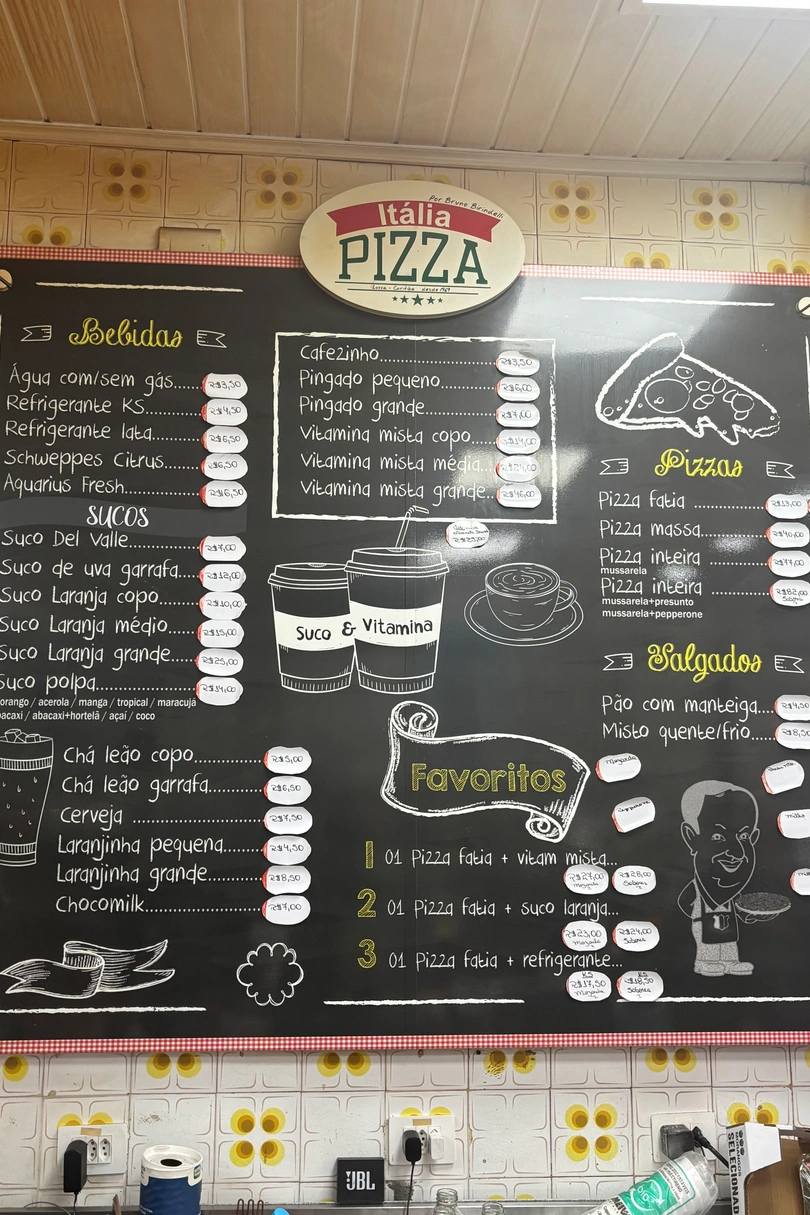 Por Bruno Birindelli
Itália
PIZZA
desde 1969
Bebidas
Água com/sem gás.... R$3,50
Refrigerante KS......... R$4,50
Refrigerante lata....... R$6,50
Schweppes Citrus...... R$6,50
Aquarius Fresh........... R$6,50
SUCOS
Suco Del Valle............. R$7,00
Suco de uva garrafa.... R$12,00
Suco Laranja copo....... R$10,00
Suco Laranja médio..... R$15,00
Suco Laranja grande.... R$25,00
Suco polpa................. R$14,00
/ acerola / manga / tropical / maracujá
/ abacaxi+hortelã / açaí / coco
Chá leão copo.............. R$5,00
Chá leão garrafa.......... R$6,50
Cerveja ..................... R$7,50
Laranjinha pequena....... R$4,50
Laranjinha grande......... R$8,50
Chocomilk................... R$7,00
Cafezinho.................... R$3,50
Pingado pequeno........... R$6,00
Pingado grande............. R$7,00
Vitamina mista copo...... R$14,00
Vitamina mista média...
Vitamina mista grande.. R$46,00
Suco & Vitamina
Pizzas
Pizza fatia ................ R$13,00
Pizza massa.............. R$40,00
Pizza inteira ............. R$77,00
mussarela
Pizza inteira ............. R$82,00
Sabores
mussarela+presunto
mussarela+pepperone
Salgados
Pão com manteiga.... R$4,50
Misto quente/frio...... R$8,50
Favoritos
1 01 Pizza fatia + vitam mista...
R$27,00 R$28,00
Sabores
2 01 Pizza fatia + suco laranja...
R$23,00 R$24,00
Sabores
3 01 Pizza fatia + refrigerante...
KS KS
R$17,50 R$18,50
Sabores
JBL